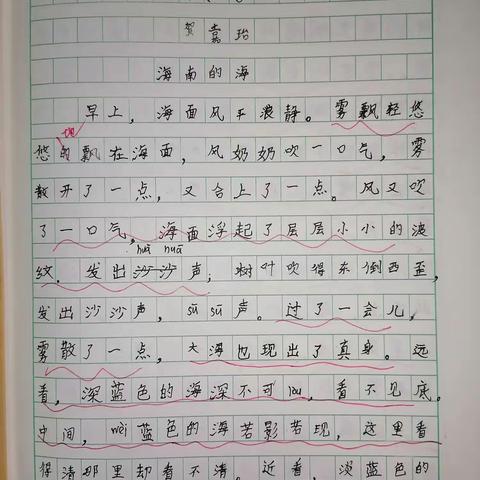 贺嘉珆
海南的海
早上，海面风平浪静。雾飘轻悠
地
悠的飘在海面，风奶奶吹一口气，雾
散开了一点，又合上了一点。风又吹
了一口气，海面浮起了层层小小的波
huā huā
纹，发出沙沙声；树叶吹得东倒西歪，
发出沙沙声，sū sū声。过了一会儿，
雾散了一点，大海也现出了真身。远
看，深蓝色的海深不可lou，看不见底。
中间，wèi蓝色的海若影若现，这里看
得清那里却看不清。近看，淡蓝色的